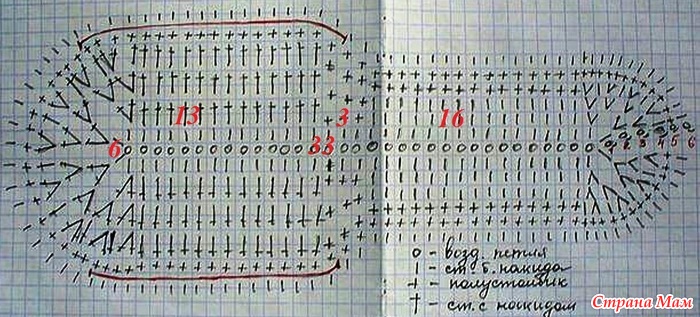 13
3
16
6
33
1 2 3 4 5 6
о - возд. петля
ı - ст. б. накида
+ - полустолбик
† - ст. с накидом
Страна Мам